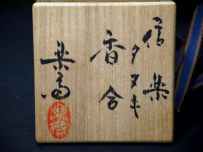 信楽
タヌキ
香合
楽斎